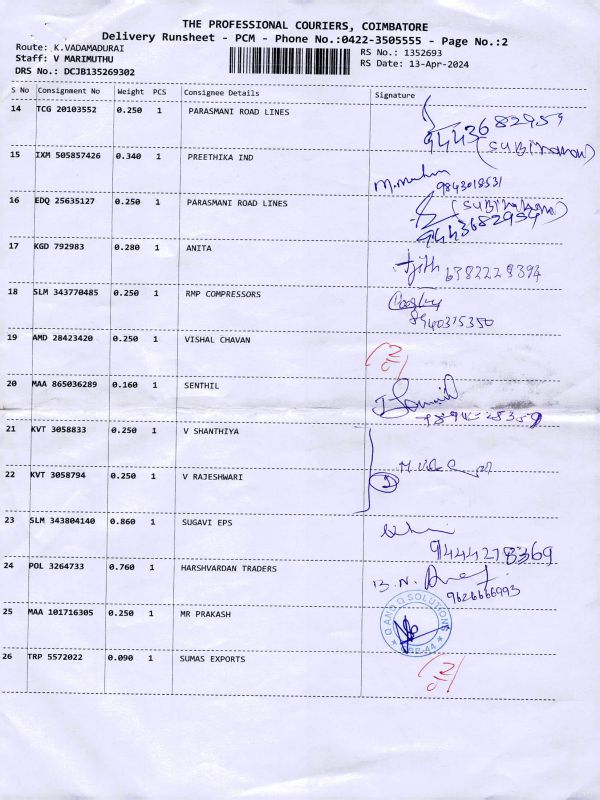 THE PROFESSIONAL COURIERS, COIMBATORE
Delivery Runsheet - PCM - Phone No.:0422-3505555 - Page No.:2
Route: K.VADAMADURAI
RS No.: 1352693
Staff: V MARIMUTHU
RS Date: 13-Apr-2024
DRS No.: DCJB135269302
S No Consignment No Weight PCS Consignee Details Signature
14 TCG 20103552 0.250 1 PARASMANI ROAD LINES
9443682959
15 IXM 505857426 0.340 1 PREETHIKA IND
9843018531
16 EDQ 25635127 0.250 1 PARASMANI ROAD LINES
9443682959
17 KGD 792983 0.280 1 ANITA
6382228394
18 SLM 343770485 0.250 1 RMP COMPRESSORS
8940375350
19 AMD 28423420 0.250 1 VISHAL CHAVAN
20 MAA 865036289 0.160 1 SENTHIL
21 KVT 3058833 0.250 1 V SHANTHIYA
22 KVT 3058794 0.250 1 V RAJESHWARI
23 SLM 343804140 0.860 1 SUGAVI EPS
9444278369
24 POL 3264733 0.760 1 HARSHVARDAN TRADERS
9626666993
25 MAA 101716305 0.250 1 MR PRAKASH
Q AND Q SOLUTIONS
26 TRP 5572022 0.090 1 SUMAS EXPORTS